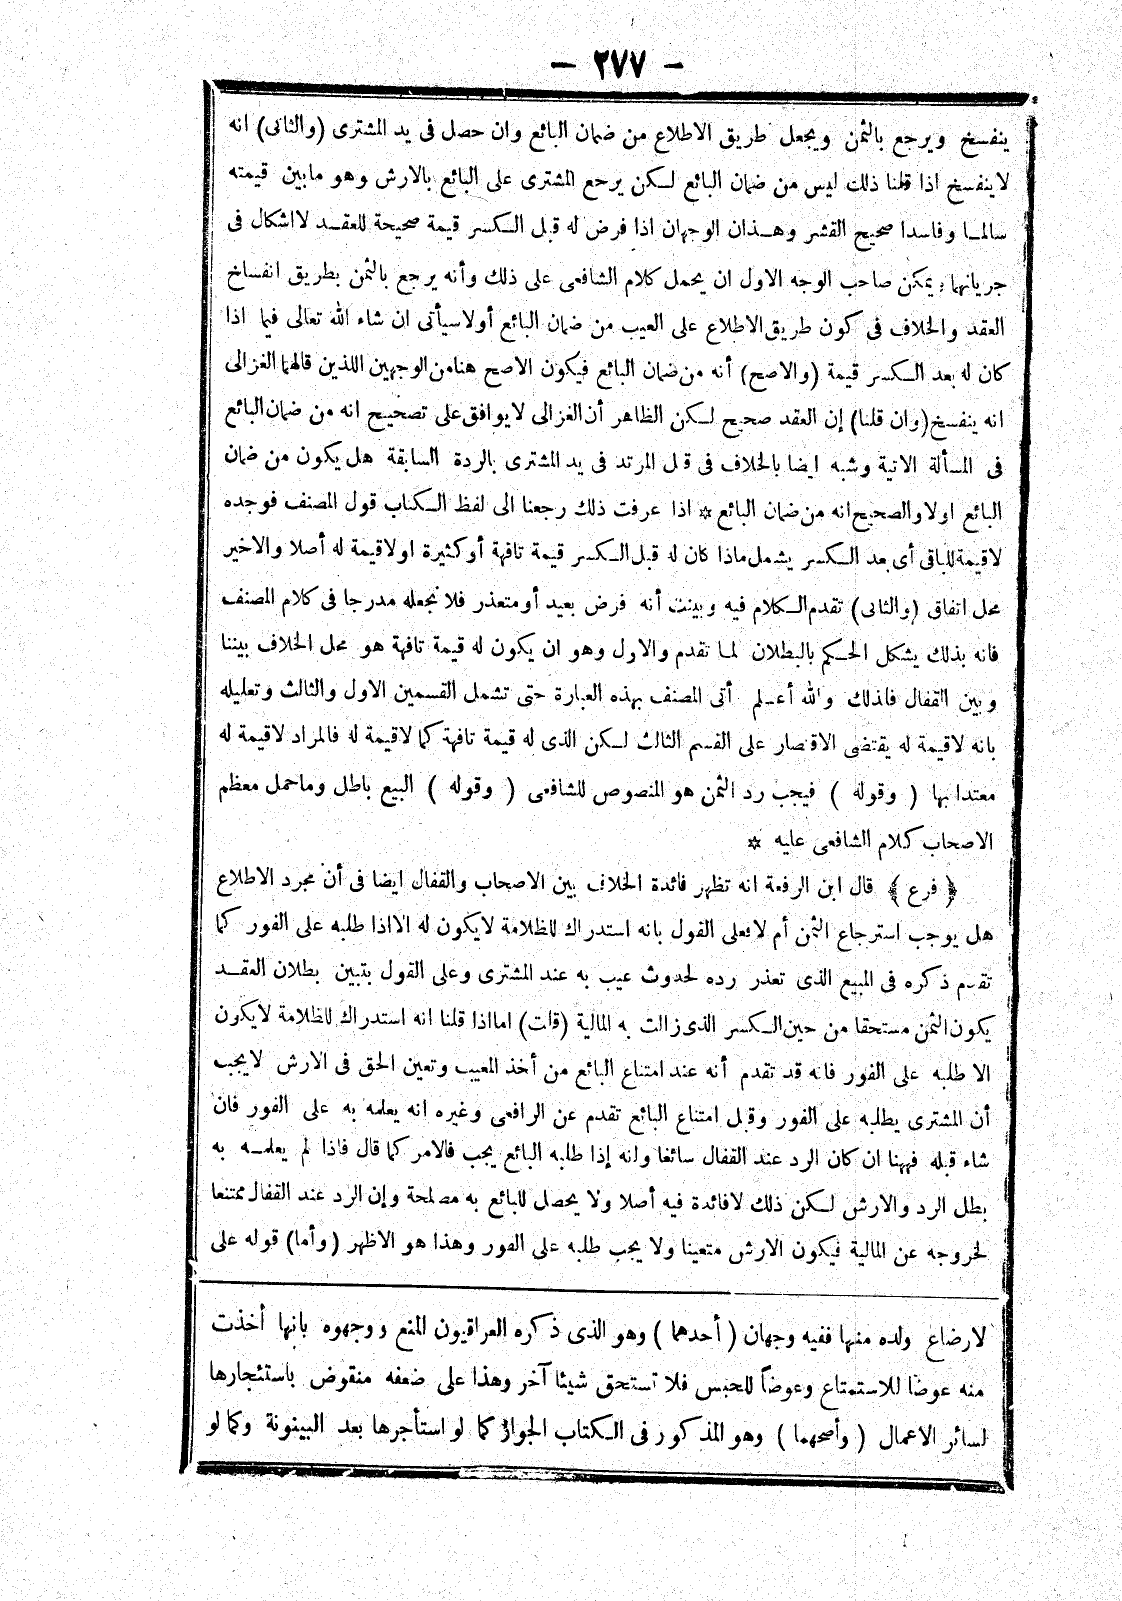 — ٢٧٧ —
ينفسخ ويرجع بالثمن ويجعل طريق الاطلاع من ضمان البائع وان حصل فى يد المشترى (والثانى) انه
لاينفسخ اذا قلنا ذلك ليس من ضمان البائع لكن يرجع المشترى على البائع بالارش وهو مابين قيمته
سالما وفاسدا صحيح القشر وهذان الوجهان اذا فرض له قبل الكسر قيمة صحيحة للعقد لااشكال فى
جريانهما ويمكن صاحب الوجه الاول ان يحمل كلام الشافعى على ذلك وأنه يرجع بالثمن بطريق انفساخ
العقد والخلاف فى كون طريق الاطلاع على العيب من ضمان البائع أولا سيأتى ان شاء الله تعالى فيما اذا
كان له بعد الكسر قيمة (والاصح) أنه من ضمان البائع فيكون الاصح هنا من الوجهين اللذين قالهما الغزالى
انه ينفسخ (وان قلنا) إن العقد صحيح لكن الظاهر أن الغزالى لايوافق على تصحيح انه من ضمان البائع
فى المسألة الاتية وشبه ايضا بالخلاف فى قتل المرتد فى يد المشترى بالردة السابقة هل يكون من ضمان
البائع اولا والصحيح انه من ضمان البائع * اذا عرفت ذلك رجعنا الى لفظ الكتاب قول المصنف فوجده
لاقيمة للباقى أى بعد الكسر يشمل ماذا كان له قبل الكسر قيمة تافهة أو كثيرة اولاقيمة له أصلا والاخير
محل اتفاق (والثانى) تقدم الكلام فيه وبينت أنه فرض بعيد أومتعذر فلا نجعله مدرجا فى كلام المصنف
فانه بذلك يشكل الحكم بالبطلان لما تقدم والاول وهو ان يكون له قيمة تافهة هو محل الخلاف بيننا
وبين القفال فلذلك والله أعلم أتى المصنف بهذه العبارة حتى تشمل القسمين الاول والثالث وتعليله
بانه لاقيمة له يقتضى الاقتصار على القسم الثالث لكن الذى له قيمة تافهة كما لاقيمة له فالمراد لاقيمة له
معتدا بها ( وقوله ) فيجب رد الثمن هو المنصوص للشافعى ( وقوله ) البيع باطل وماحمل معظم
الاصحاب كلام الشافعى عليه *
﴿ فرع ﴾ قال ابن الرفعة انه تظهر فائدة الخلاف بين الاصحاب والقفال ايضا فى أن مجرد الاطلاع
هل يوجب استرجاع الثمن أم لا فعلى القول بانه استدراك للظلامة لايكون له الااذا طلبه على الفور كما
تقدم ذكره فى المبيع الذى تعذر رده لحدوث عيب به عند المشترى وعلى القول بتبين بطلان العقد
يكون الثمن مستحقا من حين الكسر الذى زالت به المالية (قلت) امااذا قلنا انه استدراك للظلامة لايكون
الا طلبه على الفور فانه قد تقدم أنه عند امتناع البائع من أخذ المعيب وتعين الحق فى الارش لايجب
أن المشترى يطلبه على الفور وقبل امتناع البائع تقدم عن الرافعى وغيره انه يعلمه به على الفور فان
شاء قبله فههنا ان كان الرد عند القفال سائغا وانه إذا طلبه البائع يجب فالامر كما قال فاذا لم يعلمه به
بطل الرد والارش لكن ذلك لافائدة فيه أصلا ولا يحصل للبائع به مصلحة وإن الرد عند القفال ممتنعا
لخروجه عن المالية فيكون الارش متعينا ولا يجب طلبه على الفور وهذا هو الاظهر (وأما) قوله على
لارضاع ولده منها ففيه وجهان ( أحدهما ) وهو الذى ذكره العراقيون المنع ووجهوه بانها أخذت
منه عوضا للاستمتاع وعوضاً للحبس فلا تستحق شيئا آخر وهذا على ضعفه منقوض باستئجارها
لسائر الاعمال ( وأصحهما ) وهو المذكور فى الكتاب الجواز كما لو استأجرها بعد البينونة وكما لو